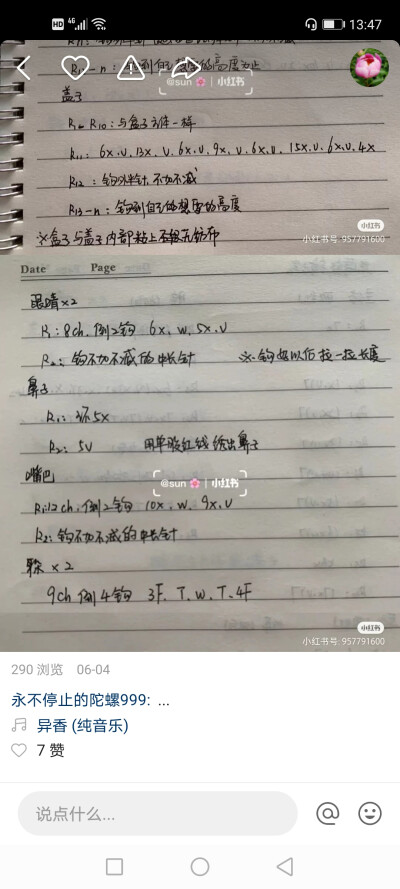 HD 4G 13:47
盖子
@sun 🌸 | 小红书
R1-R10:与盒子主体一样
R11: 6x.v.13x.v.6x.v.9x.v.6x.v.15x.v.6x.v.4x
R12:钩外半针.不加不减
R13-n:钩到自己想要的高度
※盒子与盖子内部粘上不织布
小红书
小红书号: 957791600
Date Page
眼睛×2
R1:8ch.倒2钩 6x.w.5x.v
R2:钩不加不减的中长针 ※钩好以后拉一拉长度
鼻子
R1:环5x
R2:5v 用单股红线绣出鼻子
嘴巴
@sun 🌸 | 小红书
R1:12ch.倒2钩 10x.w.9x.v
R2:钩不加不减的中长针
×2
9ch 倒4钩 3F.T.w.T.4F
小红书
小红书号: 957791600
290 浏览 06-04
永不停止的陀螺999: ...
异香 (纯音乐)
7 赞
说点什么...